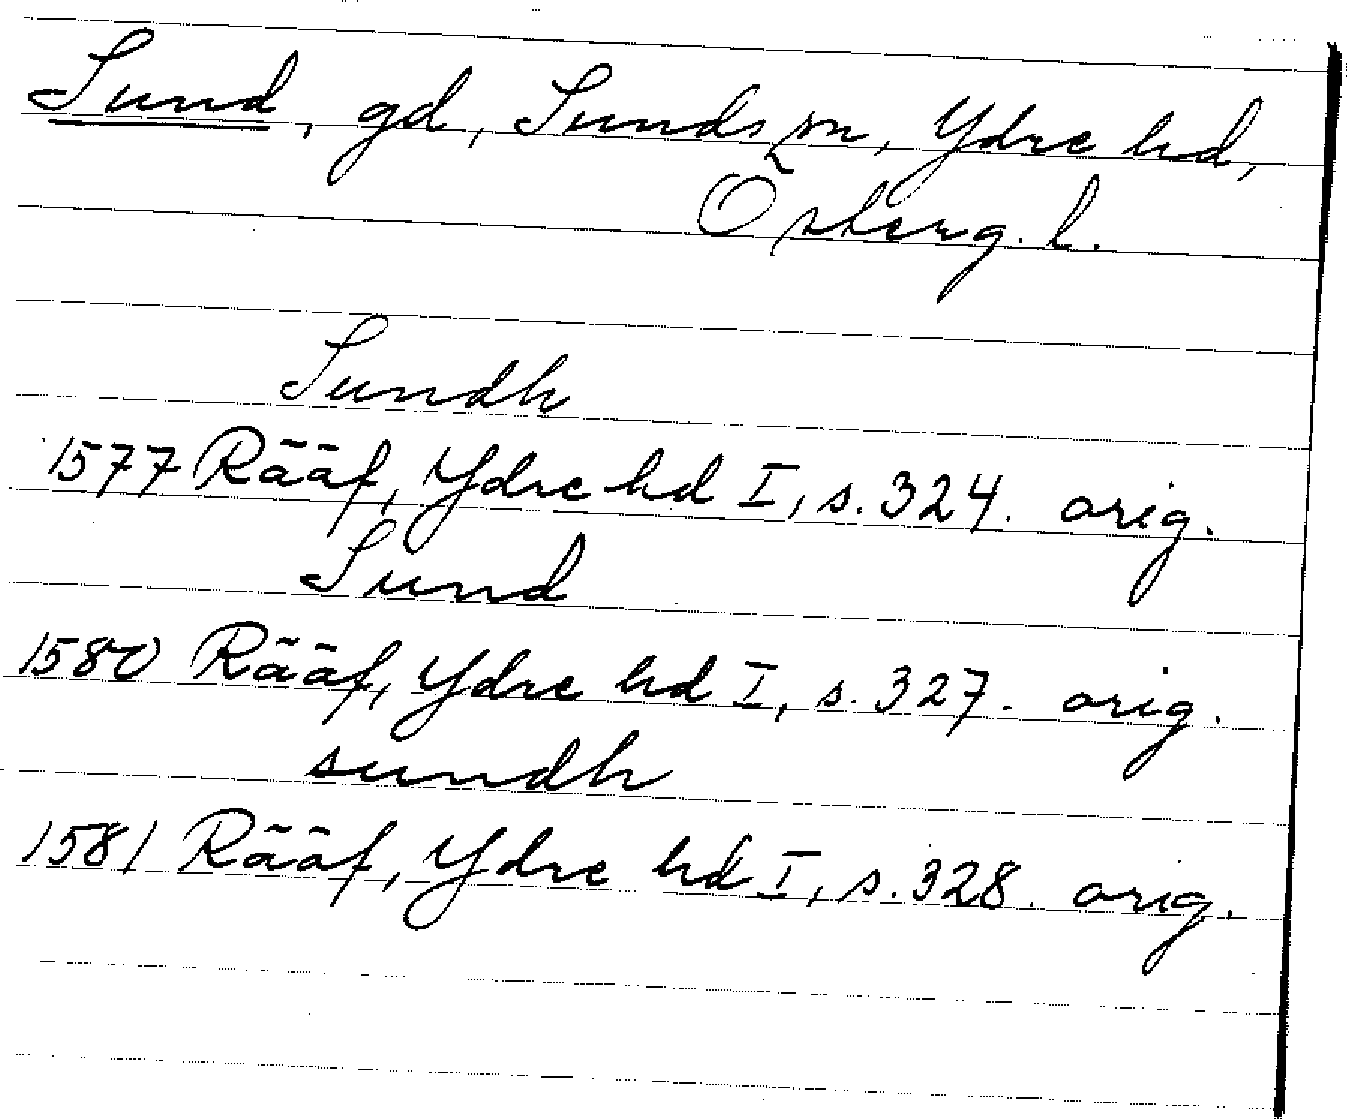 Sund, gd, Sunds sn, Ydre hd,
Österg. l.
Sundh
1577 Rääf, Ydre hd I, s. 324. orig.
Sund
1580 Rääf, Ydre hd I, s. 327. orig.
sundh
1581 Rääf, Ydre hd I, s. 328. orig.